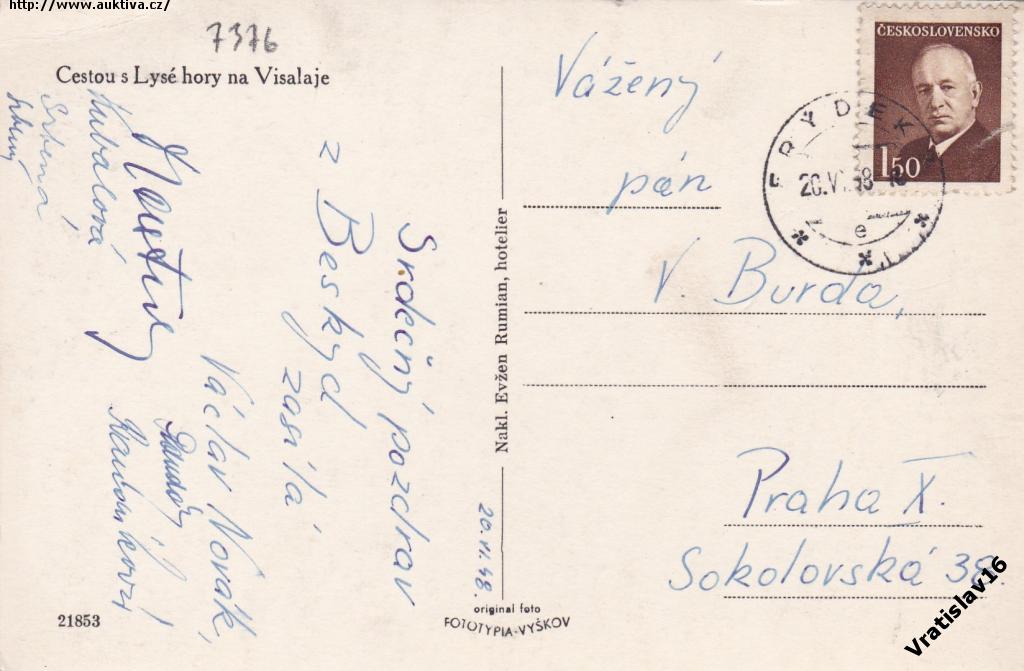 http://www.auktiva.cz/
7376
Cestou s Lysé hory na Visalaje
Srdečný pozdrav
z Beskyd
zasílá
Václav Novák,
Kubalová
Srbená
20.VI.48.
21853
Nakl. Evžen Rumian, hotelier
original foto
FOTOTYPIA-VYŠKOV
ČESKOSLOVENSKO
1 50
FRÝDEK
20.VI.48
e
Vážený
pán
V. Burda,
Praha X.
Sokolovská 38.
Vratislav16